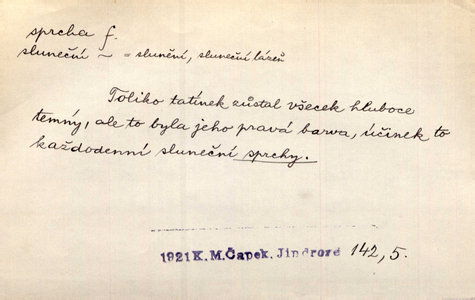 sprcha f.
sluneční ~ = slunění, sluneční lázeň
Toliko tatínek zůstal všecek hluboce
temný, ale to byla jeho pravá barva, účinek to
každodenní sluneční sprchy.
1921 K. M. Čapek. Jindrové 142, 5.